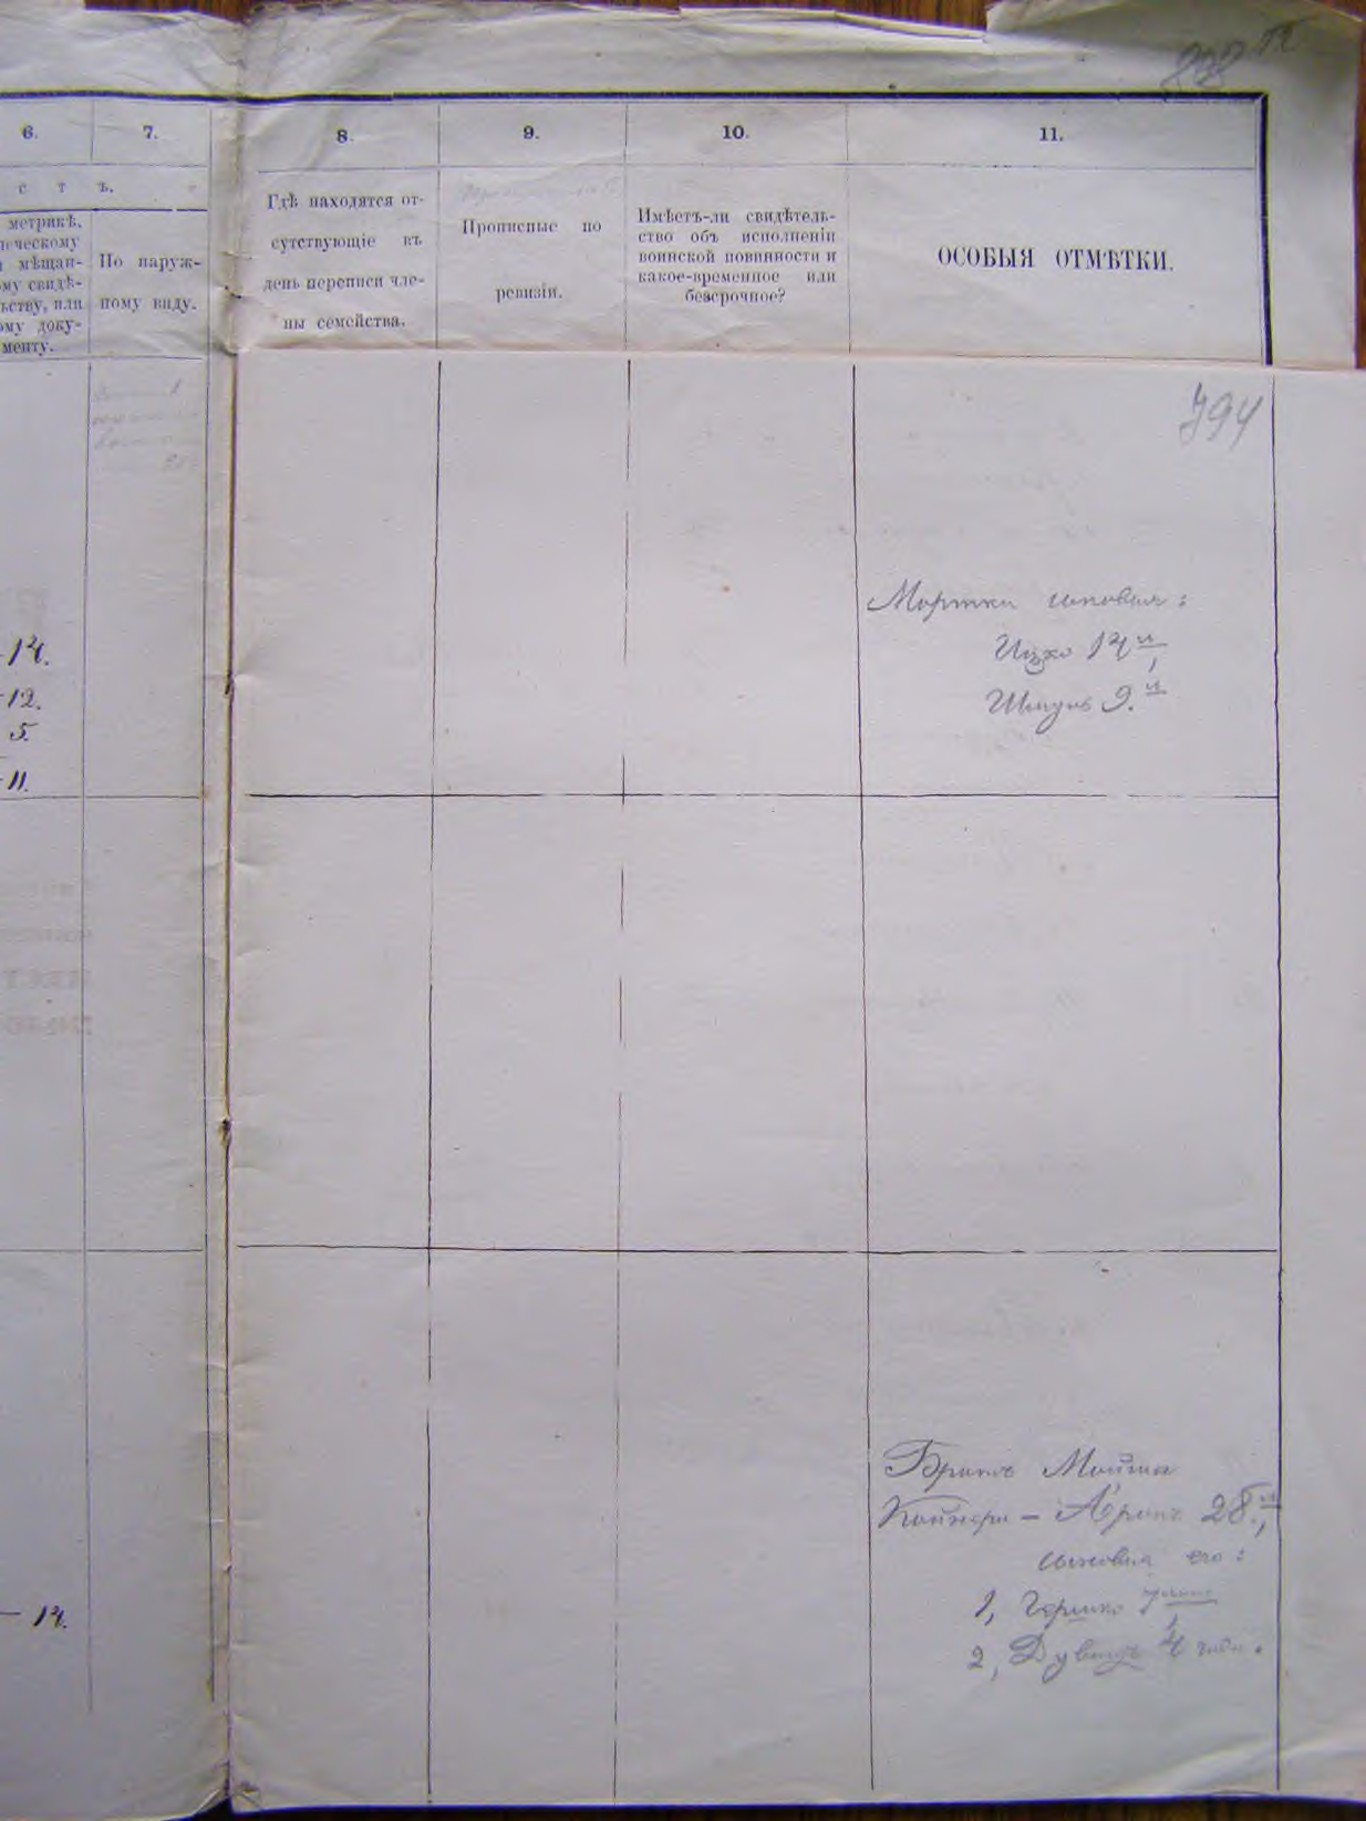 6.
7.
8.
9.
10.
11.
с т ъ.
метрикѣ,
ическому
мѣщан-
му свидѣ-
ьству, или
ому доку-
менту.
По наруж-
ному виду.
Гдѣ находятся от-
сутствующіе въ
день переписи чле-
ны семейства.
Прописные по
ревизіи.
Имѣетъ-ли свидѣтель-
ство объ исполненіи
воинской повинности и
какое-временное или
безсрочное?
ОСОБЫЯ ОТМѢТКИ.
794
14.
12.
5.
11.
Мортки сыновья:
Ицко 14 и
Шмуль 9. и
Братъ Мошка
Аронъ 28. и
сыновья его:
1, Гершко 7
2, Дувидъ 4 года.
— 14.